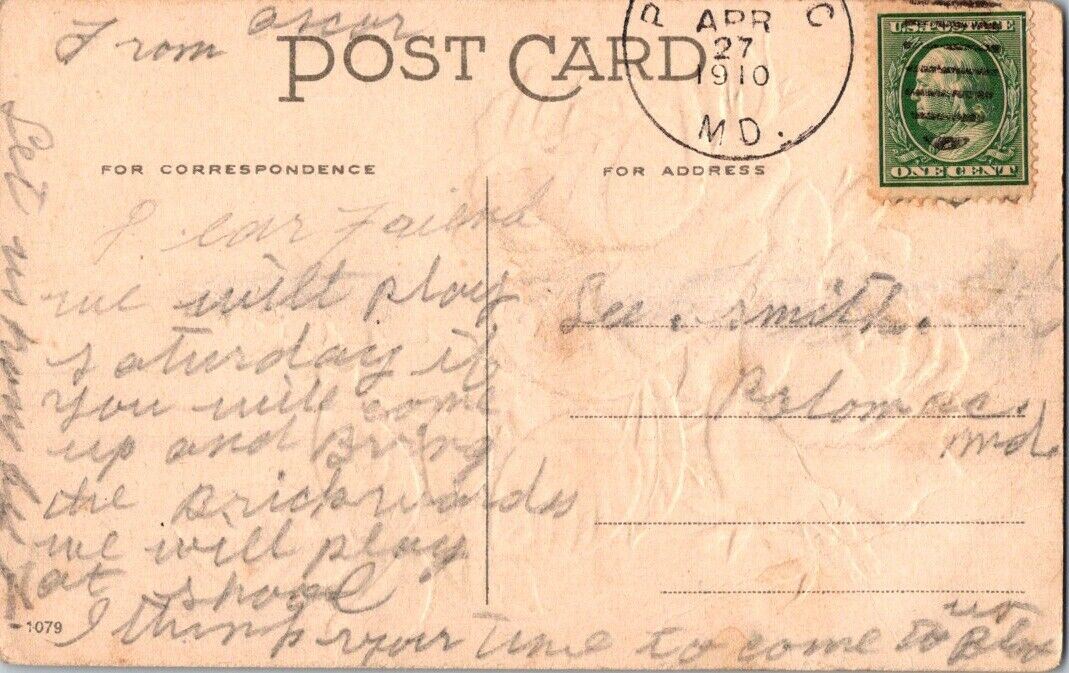 From oscar
POST CARD
APR
27
1910
MD.
U.S. POSTAGE
ONE CENT
FOR CORRESPONDENCE
FOR ADDRESS
Dear Friend
we will play
saturday if
you will come
up and Bring
the Brickwards
we will play
at shool
I think your Time to come to us
Play
Let us know
Lee Smith.
Potomac.
Md.
1079